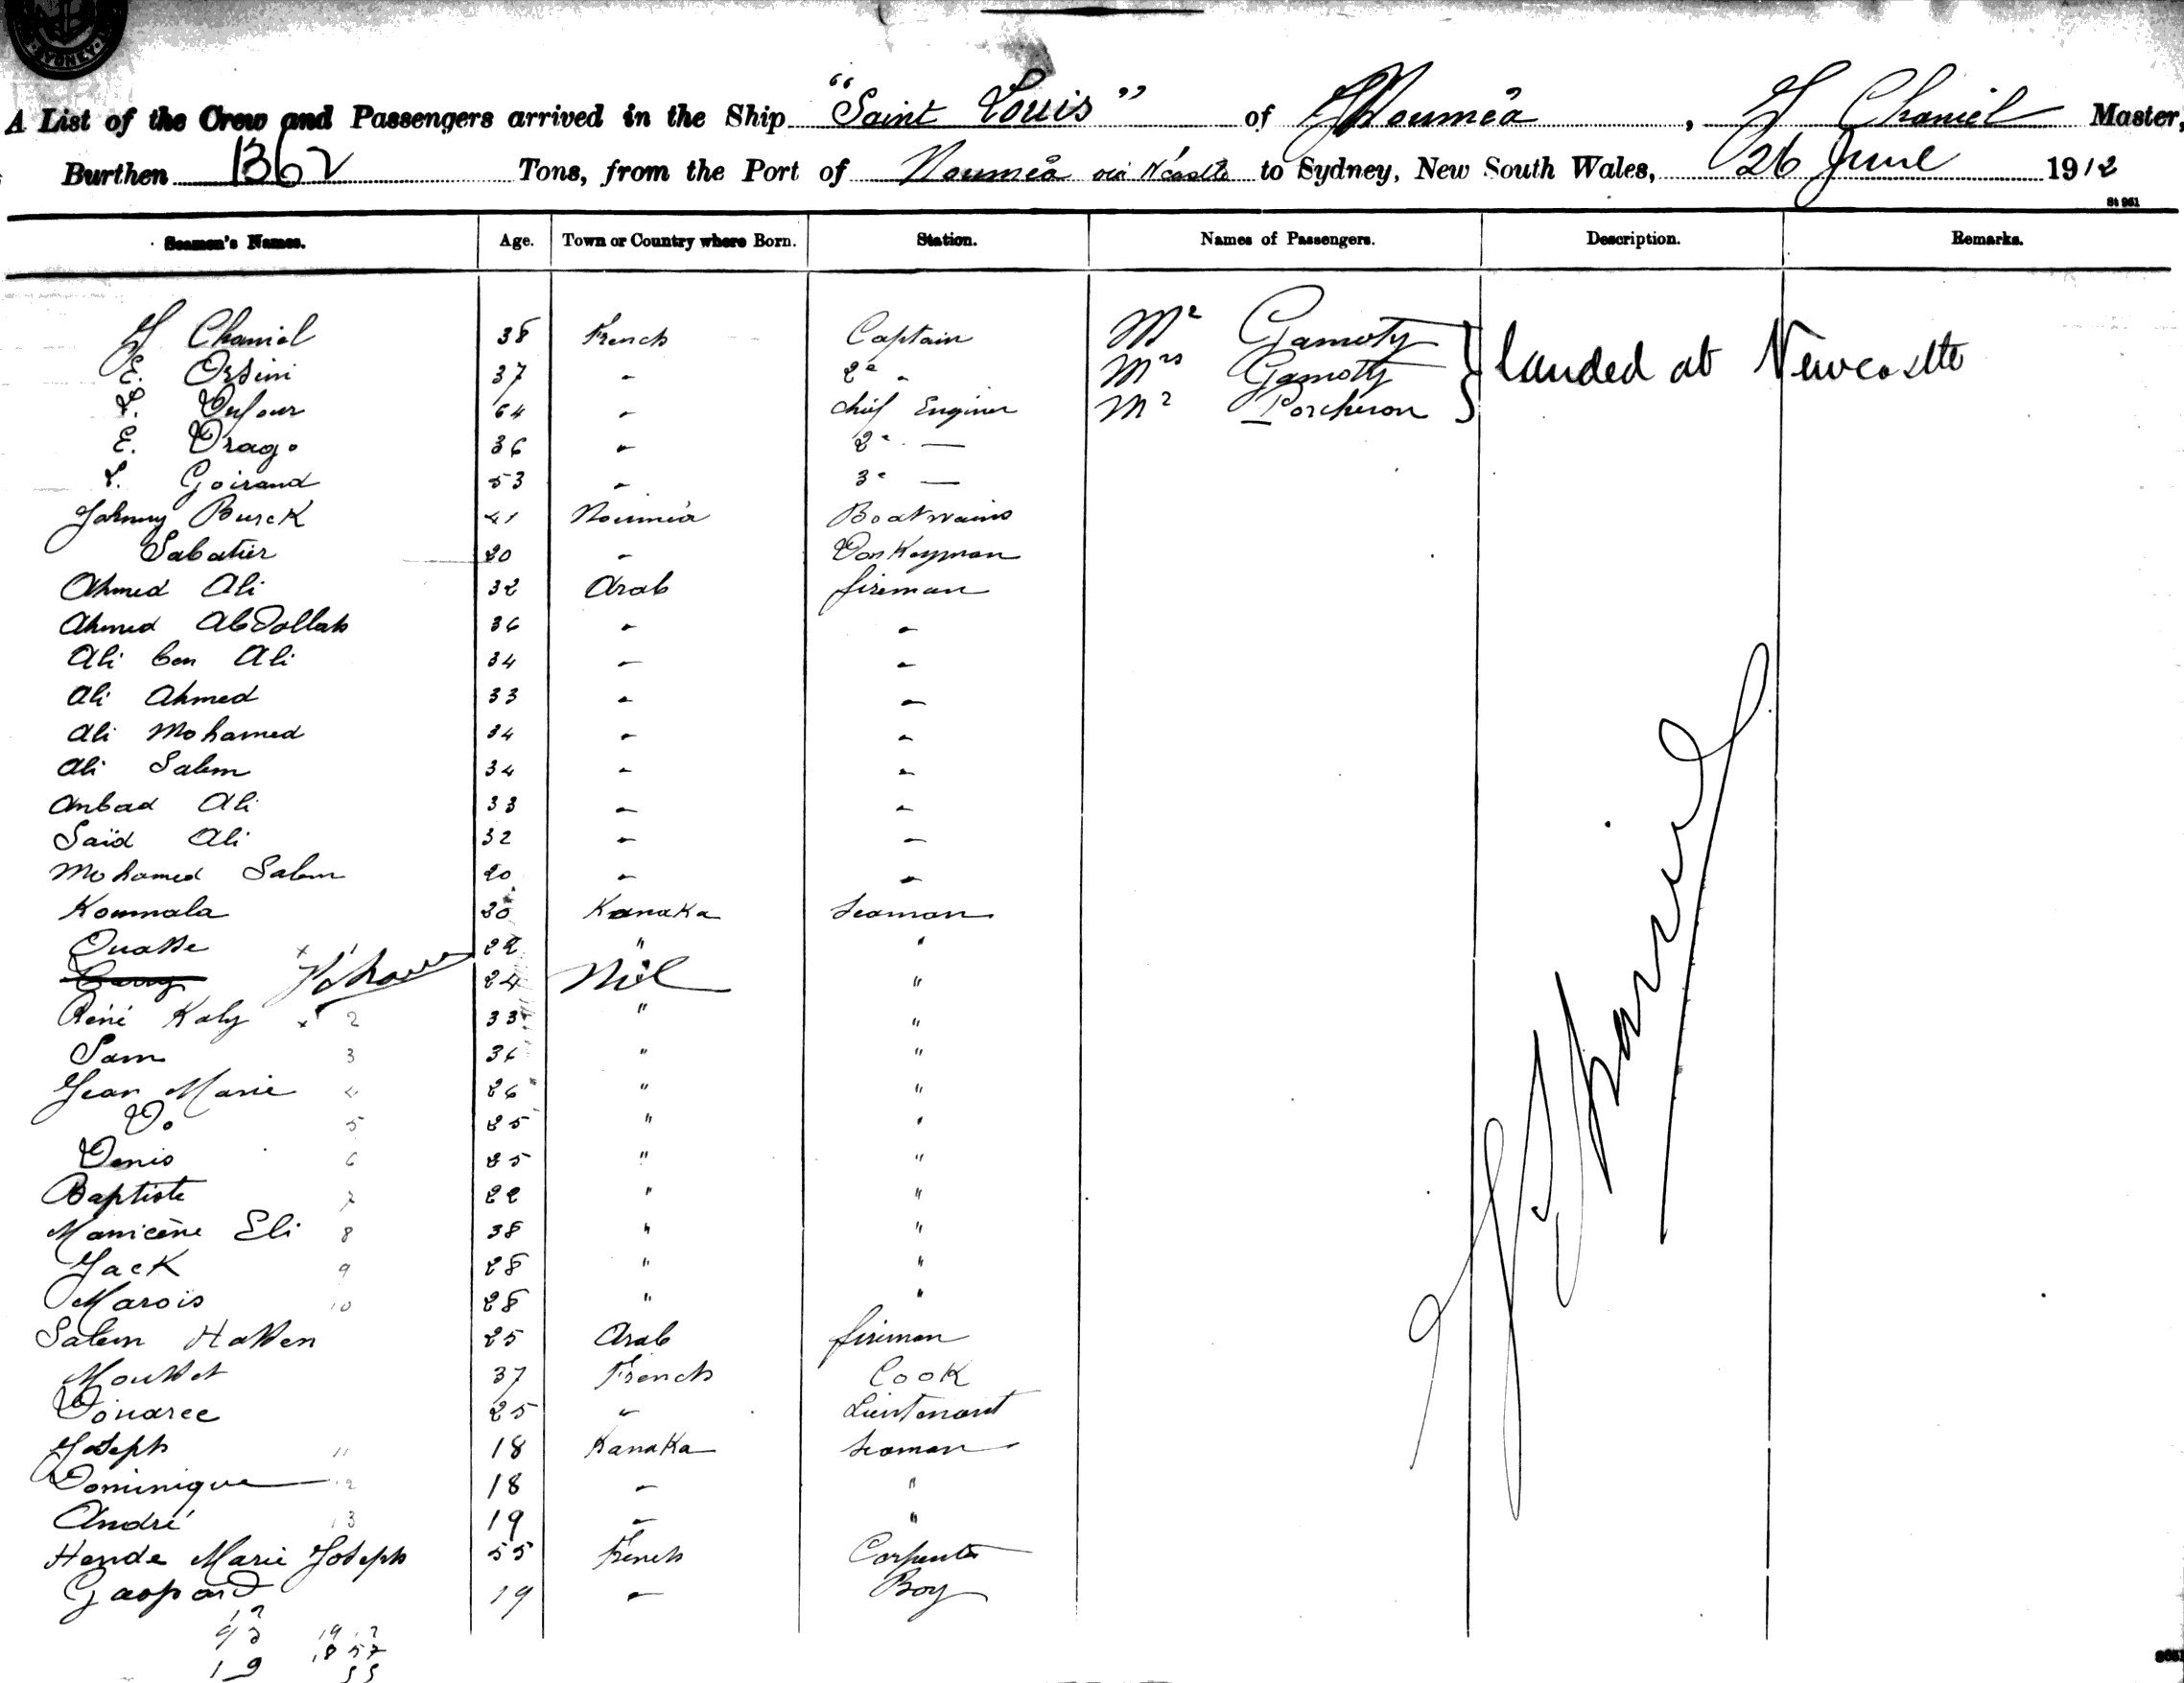 SYDNEY
A List of the Crew and Passengers arrived in the Ship "Saint Louis" of Nouméa, Chaniel Master,
Burthen 1362 Tons, from the Port of Nouméa via N'castle to Sydney, New South Wales, 26 June 1912
St 961
Seamen's Names. Age. Town or Country where Born. Station. Names of Passengers. Description. Remarks.
Chaniel 38 French Captain Mr Gamoty
E. Orsini 37 - 2e - Mrs Gamoty landed at Newcastle
L. Dufour 64 - chief Enginer Mr Porcheron
E. Drago 36 - 2e —
L. Goirand 53 - 3e —
Johnny Burck 41 Nouméa Boatswains
Sabatier 20 - Donkeyman
Ahmed Ali 32 Arab fireman
Ahmed Abdollah 36 - -
Ali ben Ali 34 - -
Ali Ahmed 33 - -
Ali Mohamed 34 - -
Ali Salem 34 - -
Anbad Ali 33 - -
Saïd Ali 32 - -
Mohamed Salem 20 - -
Koumala 30 Kanaka Seaman
Ouasse 22 " "
24 "
Réné Kaly x 2 33 " "
Sam 3 36 " "
Jean Marie 4 26 " "
Do 5 25 " "
Denis 6 25 " "
Baptiste 7 22 " "
Manicène Eli 8 38 " "
Jack 9 28 " "
Marois 10 28 " "
Salem Hassen 25 Arab fireman
Mousset 37 French Cook
Douarec 25 - Lieutenant
Joseph 11 18 Kanaka Seaman
Dominique 12 18 - "
André 13 19 - "
Hende Marie Joseph 55 French Carpenter
Gaspard 19 - Boy
19 12
18 57
19 55